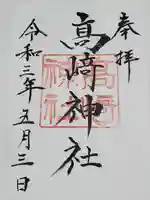 奉拝
髙﨑神社
令和三年五月三日